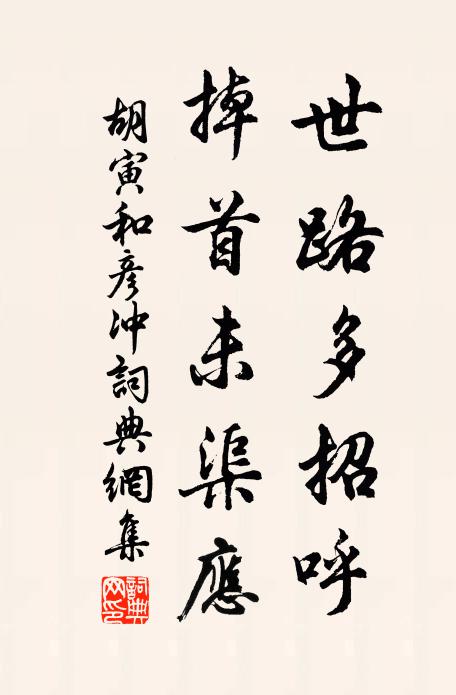 世路多招呼
掉首未渠應
胡寅和彥沖詞典網集
詞典網印